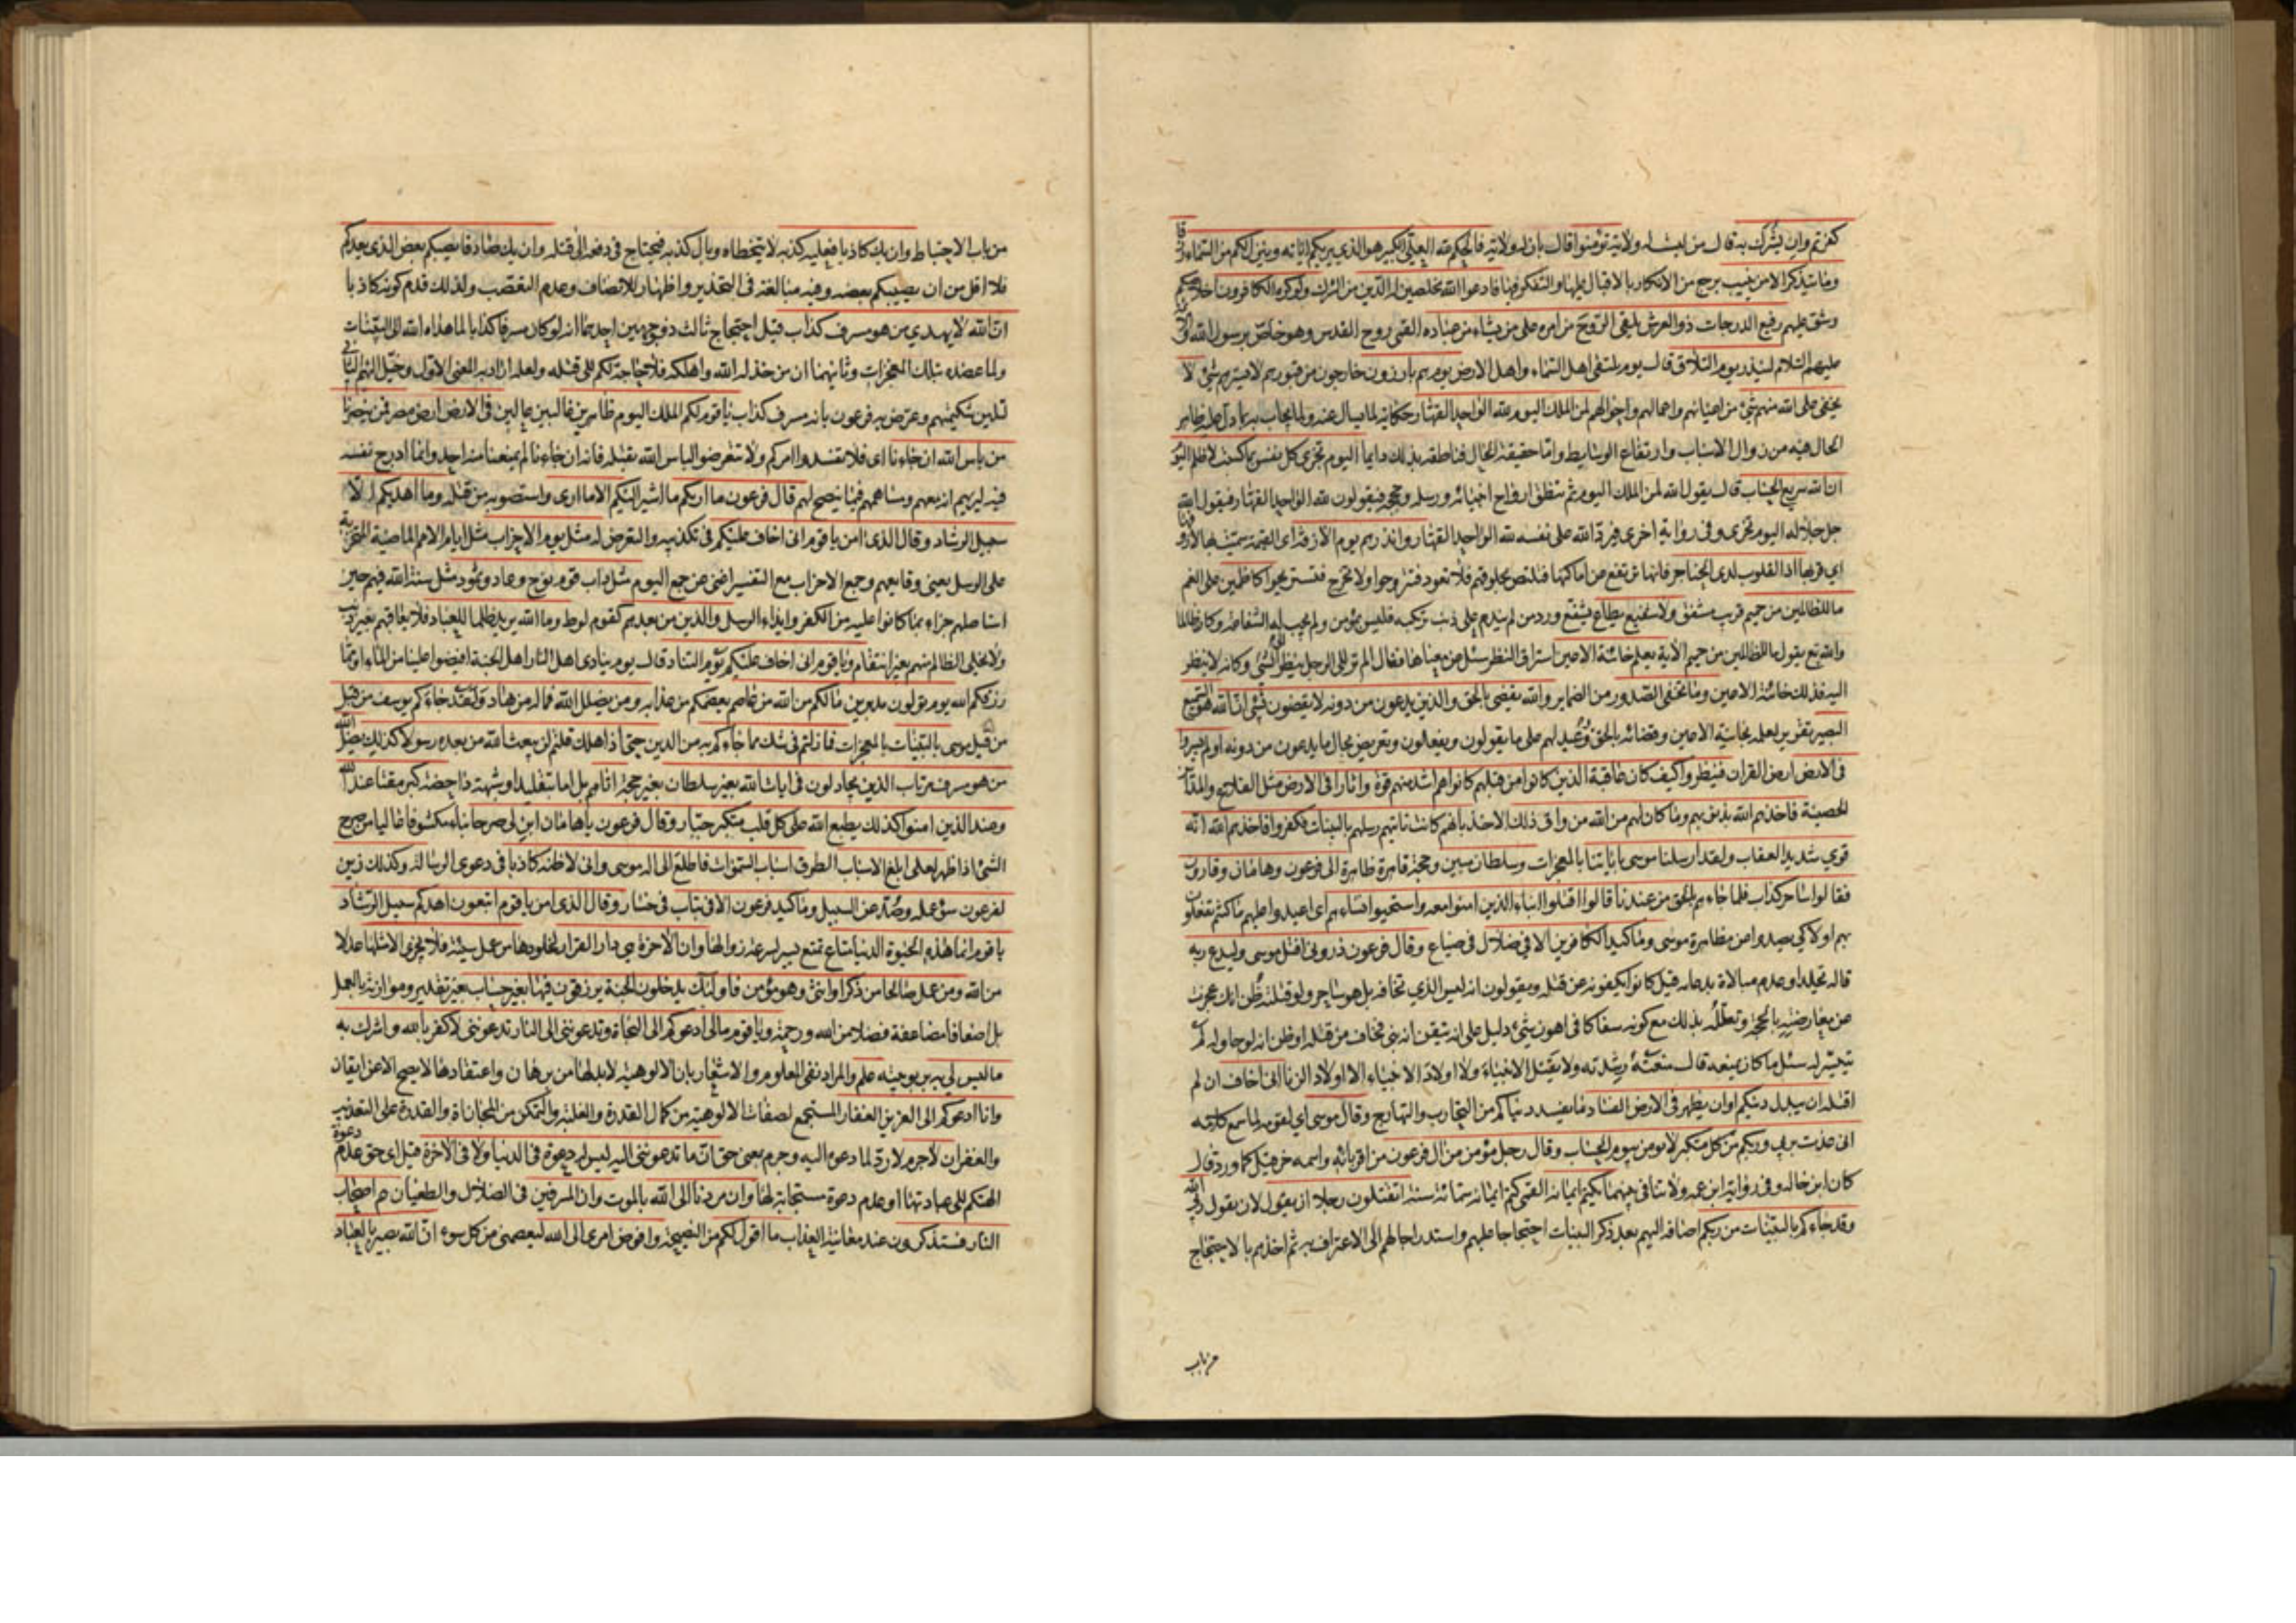 كفرتم وان يشرك به قال من ليست له ولاية تؤمنوا قال بان له ولاية فالحكم لله العلي الكبير هو الذي يريكم اياته وينزل لكم من السماء رزقا
وما يتذكر الا من ينيب يرجع من الانكار بالاقبال عليها والتفكر فيها فادعوا الله مخلصين له الدين من الشرك ولو كره الكافرون اخلاصكم
وشق عليهم رفيع الدرجات ذو العرش يلقى الروح من امره على من يشاء من عباده القمي روح القدس وهو خاص برسول الله والائمة
عليهم السلام لينذر يوم التلاق قال يوم يلتقى اهل السماء واهل الارض يوم هم بارزون خارجون من قبورهم لا يسترهم شئ لا
يخفى على الله منهم شئ من اعيانهم واعمالهم واحوالهم لمن الملك اليوم لله الواحد القهار حكاية لما يسال عنه ولما يجاب به بما دل عليه ظاهر
الحال فيه من زوال الاسباب وارتفاع الوسايط واما حقيقة الحال فناطقة بذلك دايما اليوم تجزى كل نفس بما كسبت لا ظلم اليوم
ان الله سريع الحساب قال يقول الله لمن الملك اليوم ثم ينطق ارواح انبيائه ورسله وحججه فيقولون لله الواحد القهار فيقول الله
جل جلاله اليوم تجزى وفى رواية اخرى فيرد الله على نفسه لله الواحد القهار وانذرهم يوم الازفة اى القيمة سميت بها لازوفها
اي قربها اذ القلوب لدى الحناجر فانها ترتفع عن اماكنها فتلتصق بحلوقهم فلا تعود فتتروحوا ولا تخرج فتستريحوا كاظمين على الغم
ما للظالمين من حميم قريب مشفق ولا شفيع يطاع يشفع ورد من لم يندم على ذنب يرتكبه فليس بمؤمن ولم تجب له الشفاعة وكان ظالما
والله تع يقول ما للظالمين من حميم الاية يعلم خائنة الاعين استراق النظر سئل عن معناها فقال الم تر الى الرجل ينظر الى الشئ وكانه لا ينظر
اليه فذلك خائنة الاعين وما تخفى الصدور من الضماير والله يقضى بالحق والذين يدعون من دونه لا يقضون بشئ ان الله هو السميع
البصير تقرير لعلمه بخائنة الاعين وقضائه بالحق ووعيد لهم على ما يقولون ويفعلون وتعريض بحال ما يدعون من دونه اولم يسيروا
فى الارض ارض القران فينظروا كيف كان عاقبة الذين كانوا من قبلهم كانوا هم اشد منهم قوة واثارا فى الارض مثل القلاع والمداين
الحصينة فاخذهم الله بذنوبهم وما كان لهم من الله من واق ذلك الاخذ بانهم كانت تاتيهم رسلهم بالبينات فكفروا فاخذهم الله انه
قوي شديد العقاب ولقد ارسلنا موسى باياتنا بالمعجزات وسلطان مبين وحجة قاهرة ظاهرة الى فرعون وهامان وقارون
فقالوا ساحر كذاب فلما جاءهم بالحق من عندنا قالوا اقتلوا ابناء الذين امنوا معه واستحيوا نساءهم اى اعيدوا عليهم ما كنتم تفعلون
بهم اولا كي يصدوا عن مظاهرة موسى وما كيد الكافرين الا فى ضلال فى ضياع وقال فرعون ذرونى اقتل موسى وليدع ربه
قاله تجلدا وعدم مبالاة بدعائه قيل كانوا يكفونه عن قتله ويقولون انه ليس الذي تخافه بل هو ساحر ولو قتلته ظن انك عجزت
عن معارضته بالحجة وتعلله بذلك مع كونه سفاكا فى اهون شئ دليل على انه تيقن انه نبى فخاف من قتله او ظن انه لو حاوله لم
يتيسر له سئل ما كان يمنعه قال منعته رشدته ولا يقتل الانبياء ولا اولاد الانبياء الا اولاد الزنا انى اخاف ان لم
اقتله ان يبدل دينكم او ان يظهر فى الارض الفساد ما يفسد دنياكم من التحارب والتهارج وقال موسى اي لقومه لما سمع كلامه
انى عذت بربي وربكم من كل متكبر لا يؤمن بيوم الحساب وقال رجل مؤمن من ال فرعون من اقربائه واسمه خرقيل كما ورد قال
كان ابن خاله وفى رواية ابن عمه ولا تنافى بينهما يكتم ايمانه القمي كتم ايمانه ستمائة سنة اتقتلون رجلا ان يقول لان يقول ربي الله
وقد جاءكم بالبينات من ربكم اضافه اليهم بعد ذكر البينات احتجاجا عليهم واستدراجا لهم الى الاعتراف به ثم اخذهم بالاحتجاج
من باب
من باب الاحتياط وان يك كاذبا فعليه كذبه لا يتخطاه وبال كذبه فيحتاج فى دفعه الى قتله وان يك صادقا يصبكم بعض الذى يعدكم
فلا اقل من ان يصيبكم بعضه وفيه مبالغة فى التحذير واظهار للانصاف وعدم التعصب ولذلك قدم كونه كاذبا
ان الله لا يهدي من هو مسرف كذاب قيل احتجاج ثالث ذو وجهين احدهما انه لو كان مسرفا كذابا لما هداه الله الى البينات
ولما عضده بتلك المعجزات وثانيهما ان من خذله الله واهلكه فلا حاجة لكم الى قتله ولعله اراد به المعنى الاول وخيل اليهم الثانى
لتلين شكيمتهم وعرض به فرعون بانه مسرف كذاب يا قوم لكم الملك اليوم ظاهرين غالبين عالين فى الارض ارض مصر فمن ينصرنا
من باس الله ان جاءنا اى فلا تفسدوا امركم ولا تتعرضوا لباس الله بقتله فانه ان جاءنا لم يمنعنا منه احد وانما ادرج نفسه
فيه ليريهم انه معهم ومساهمهم فيما ينصح لهم قال فرعون ما اريكم ما اشير اليكم الا ما ارى واستصوبه من قتله وما اهديكم الا
سبيل الرشاد وقال الذى امن يا قوم انى اخاف عليكم فى تكذيبه والتعرض له مثل يوم الاحزاب مثل ايام الامم الماضية المتحزبة
على الرسل يعنى وقايعهم وجمع الاحزاب مع التفسير اغنى عن جمع اليوم مثل داب قوم نوح وعاد وثمود مثل سنة الله فيهم حين
استاصلهم جزاء بما كانوا عليه من الكفر وايذاء الرسل والذين من بعدهم كقوم لوط وما الله يريد ظلما للعباد فلا يعاقبهم بغير ذنب
ولا يخلى الظالم منهم بغير انتقام ويا قوم انى اخاف عليكم يوم التناد قال يوم ينادى اهل النار اهل الجنة افيضوا علينا من الماء او مما
رزقكم الله يوم تولون مدبرين ما لكم من الله من عاصم يعصمكم من عذابه ومن يضلل الله فما له من هاد ولقد جاءكم يوسف من قبل
من قبل موسى بالبينات بالمعجزات فما زلتم فى شك مما جاءكم به من الدين حتى اذا هلك قلتم لن يبعث الله من بعده رسولا كذلك يضل الله
من هو مسرف مرتاب الذين يجادلون فى ايات الله بغير سلطان بغير حجة اتاهم بل اما بتقليد او شبهة داحضة كبر مقتا عند الله
وعند الذين امنوا كذلك يطبع الله على كل قلب متكبر جبار وقال فرعون يا هامان ابن لى صرحا بناء مكشوفا عاليا من صرح
الشئ اذا ظهر لعلى ابلغ الاسباب الطرق اسباب السموات فاطلع الى اله موسى وانى لاظنه كاذبا فى دعوى الرسالة وكذلك زين
لفرعون سوء عمله وصد عن السبيل وما كيد فرعون الا فى تباب فى خسار وقال الذى امن يا قوم اتبعون اهدكم سبيل الرشاد
يا قوم انما هذه الحيوة الدنيا متاع تمتع يسير لسرعة زوالها وان الاخرة هى دار القرار لخلودها من عمل سيئة فلا يجزى الا مثلها عدلا
من الله ومن عمل صالحا من ذكر او انثى وهو مؤمن فاولئك يدخلون الجنة يرزقون فيها بغير حساب بغير تقدير وموازنة بالعمل
بل اضعافا مضاعفة فضلا من الله ورحمة ويا قوم مالى ادعوكم الى النجاة وتدعوننى الى النار تدعوننى لاكفر بالله واشرك به
ما ليس لي به بربوبيته علم والمراد نفى المعلوم والاشعار بان الالوهية لا بد لها من برهان واعتقادها لا يصح الا عن ايقان
وانا ادعوكم الى العزيز الغفار المستجمع لصفات الالوهية من كمال القدرة والغلبة والتمكن من المجازاة والقدرة على التعذيب
والغفران لا جرم لا رد لما دعوه اليه وجرم بمعنى حق ان ما تدعوننى اليه ليس له دعوة فى الدنيا ولا فى الاخرة قيل اى حق عدم دعوة
الهتكم الى عبادتها او عدم دعوة مستجابة لها وان مردنا الى الله بالموت وان المسرفين فى الضلال والطغيان هم اصحاب
النار فستذكرون عند معاينة العذاب ما اقول لكم من النصيحة وافوض امرى الى الله ليعصمنى من كل سوء ان الله بصير بالعباد